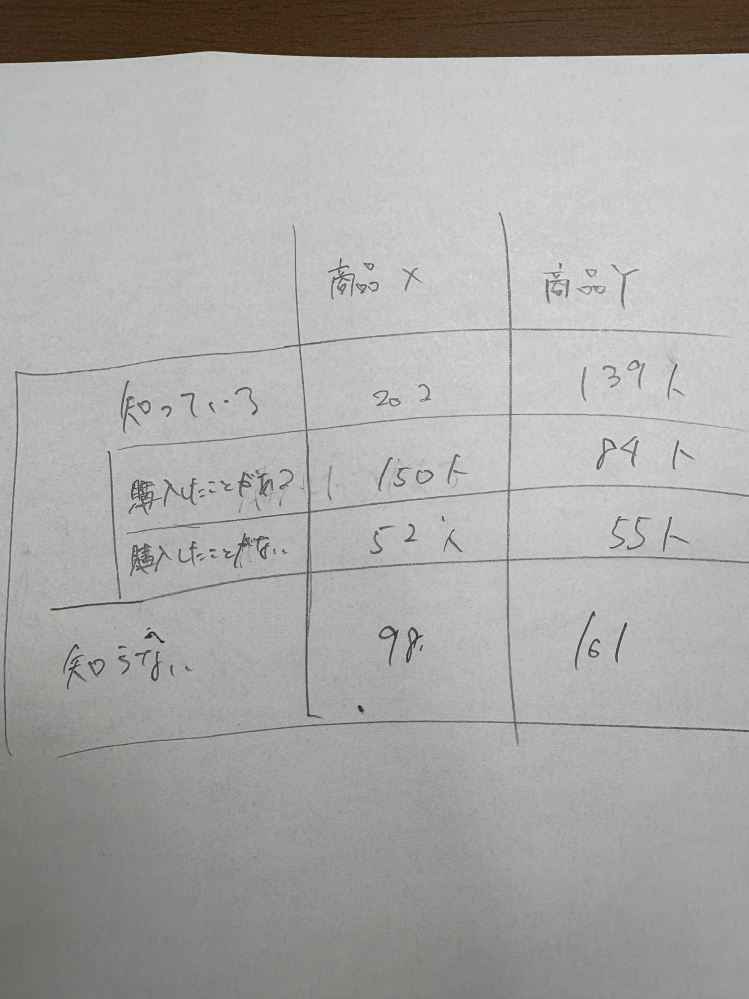 商品X 商品Y
知っている 202 139人
購入したことがある 150人 84人
購入したことがない 52人 55人
知らない 98 161